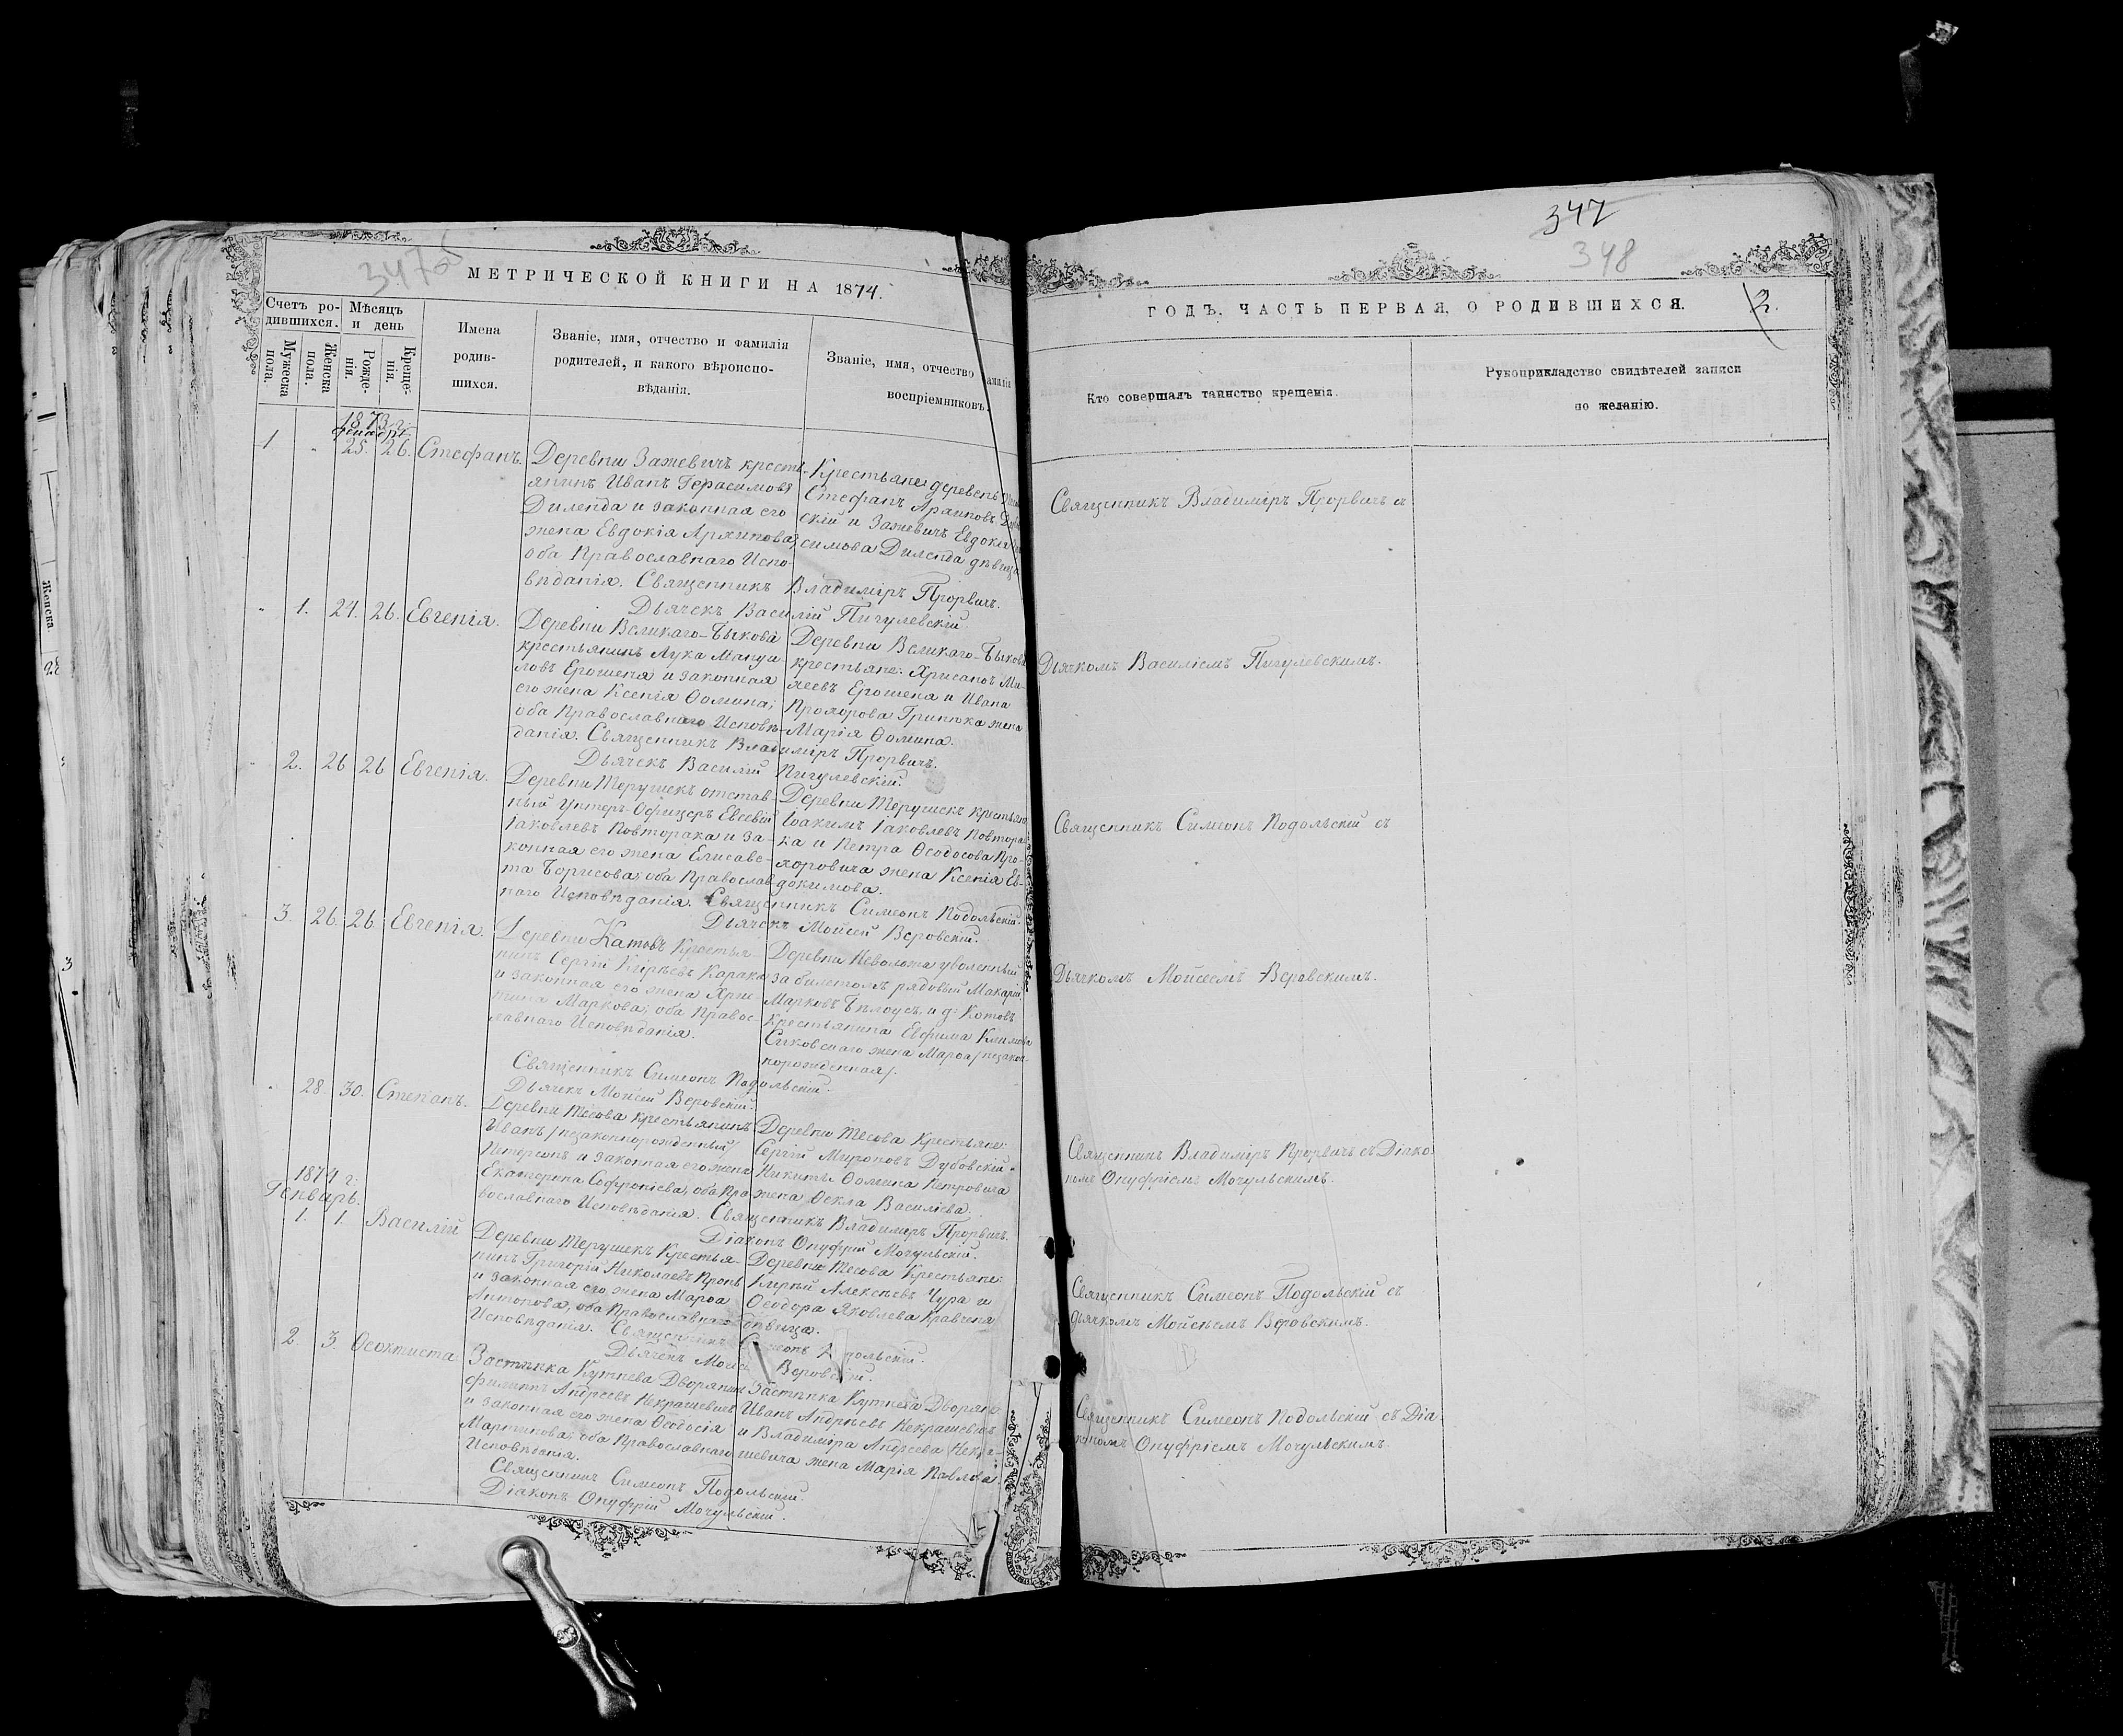 347об
МЕТРИЧЕСКОЙ КНИГИ НА 1874.
Счетъ ро-
дившихся.
Мѣсяцъ
и день
Мужеска
пола.
Женска
пола.
Рожде-
нія.
Креще-
нія.
Имена
родив-
шихся.
Званіе, имя, отчество и фамилія
родителей, и какого вѣроиспо-
вѣданія.
Званіе, имя, отчество
воспріемниковъ.
1873 г.
1. 25. 26. Стефанъ.
Деревни Зажевичъ кресть-
янинъ Иванъ Герасимовъ
Диленда и законная его
жена Евдокія Архипова,
оба Православнаго Испо-
вѣданія. Священникъ Владиміръ Прорвичъ.
Дьячекъ Василій Пигулевскій.
Крестьяне деревень
Стефанъ Архиповъ
скій и Зажевичъ Евдокія
симова Диленда дѣвица
1. 24. 26. Евгенія.
Деревни Великаго-Быкова
крестьянинъ Лука Мануи-
ловъ Ерошеня и законная
его жена Ксенія Ѳомина;
оба Православнаго Исповѣ-
данія. Священникъ Владиміръ Прорвичъ.
Дьячекъ Василій Пигулевскій.
Деревни Великаго-Быкова
крестьяне: Хрисанѳъ Ми-
хеевъ Ерошеня и Ивана
Прохорова Гринюка жена
Марія Ѳомина.
2. 26 26 Евгенія.
Деревни Терушекъ отстав-
ный Унтеръ-Офицеръ Евсевій
Іаковлевъ Повторака и за-
конная его жена Елисаве-
та Борисова; оба Православ-
наго Исповѣданія. Священникъ Симеонъ Подольскій.
Дьячекъ Мойсей Веровскій.
Деревни Терушекъ крестьяне
Іоакимъ Іаковлевъ Повтора-
ка и Петра Ѳеодосова Про-
хоровича жена Ксенія Ев-
докимова.
3. 26. 26. Евгенія.
Деревни Катовъ Крестья-
нинъ Сергій
и законная его жена Хрис-
тина Маркова; оба Правос-
лавнаго Исповѣданія.
Священникъ Симеонъ Подольскій.
Дьячекъ Мойсей Веровскій.
Деревни Неволожа уволенный
за билетомъ рядовый Макарій
Марковъ Бѣлоусъ, и д: Котовъ
Крестьянина Евфима Климова
Сиковскаго жена Марѳа /незакон-
норожденная/.
28. 30. Степанъ.
Деревни Тесова крестьянинъ
Иванъ /незаконнорожденный/
Петерсонъ и законная его жена
Екатерина Софроніева, оба Пра-
вославнаго Исповѣданія. Священникъ Владиміръ Прорвичъ.
Діаконъ Онуфрій Мочульскій.
Деревни Тесова Крестьяне:
Сергій Мироновъ Дубовскій и
Никиты Ѳомина Петровича
жена Ѳекла Василіева.
1874 г:
Генварь.
1. 1. Василій
Деревни Терушекъ Крестья-
нинъ Григорій Николаевъ
и законная его жена Марѳа
Антонова, оба Православнаго
Исповѣданія. Священникъ Симеонъ Подольскій.
Дьячекъ Мойсей Веровскій.
Деревни Тесова Крестьяне:
Кирѣй Алексѣевъ Чура и
Ѳеодора Яковлева Кравченя
дѣвица.
2. 3. Ѳеоктиста
Застѣнка Кутнева Дворянинъ
Филиппъ Андреевъ Некрашевичъ
и законная его жена Ѳеодосія
Мартинова; оба Православнаго
Исповѣданія.
Священникъ Симеонъ Подольскій.
Діаконъ Онуфрій Мочульскій.
Застѣнка Кутнева Дворяне:
Иванъ Андрѣевъ Некрашевичъ
и Владиміра Андреева Некра-
шевича жена Марія Павлова.
347
348
ГОДЪ. ЧАСТЬ ПЕРВАЯ, О РОДИВШИХСЯ.
2.
Кто совершалъ таинство крещенія.
Рукоприкладство свидѣтелей записи
по желанію.
Священникъ Владиміръ Прорвичъ съ
Дьячкомъ Василіемъ Пигулевскимъ.
Священникъ Симеонъ Подольскій съ
Дьячкомъ Мойсеемъ Веровскимъ.
Священникъ Владиміръ Прорвичъ съ Діако-
номъ Онуфріемъ Мочульскимъ.
Священникъ Симеонъ Подольскій съ
дьячкомъ Мойсѣемъ Веровскимъ.
Священникъ Симеонъ Подольскій съ Діа-
кономъ Онуфріемъ Мочульскимъ.